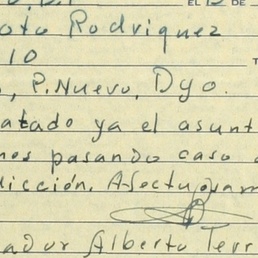 EL
oto Rodriguez
10
P. Nuevo, Dgo.
atado ya el asunt
mos pasando caso
dicción. Afectuosam
ador Alberto Terr